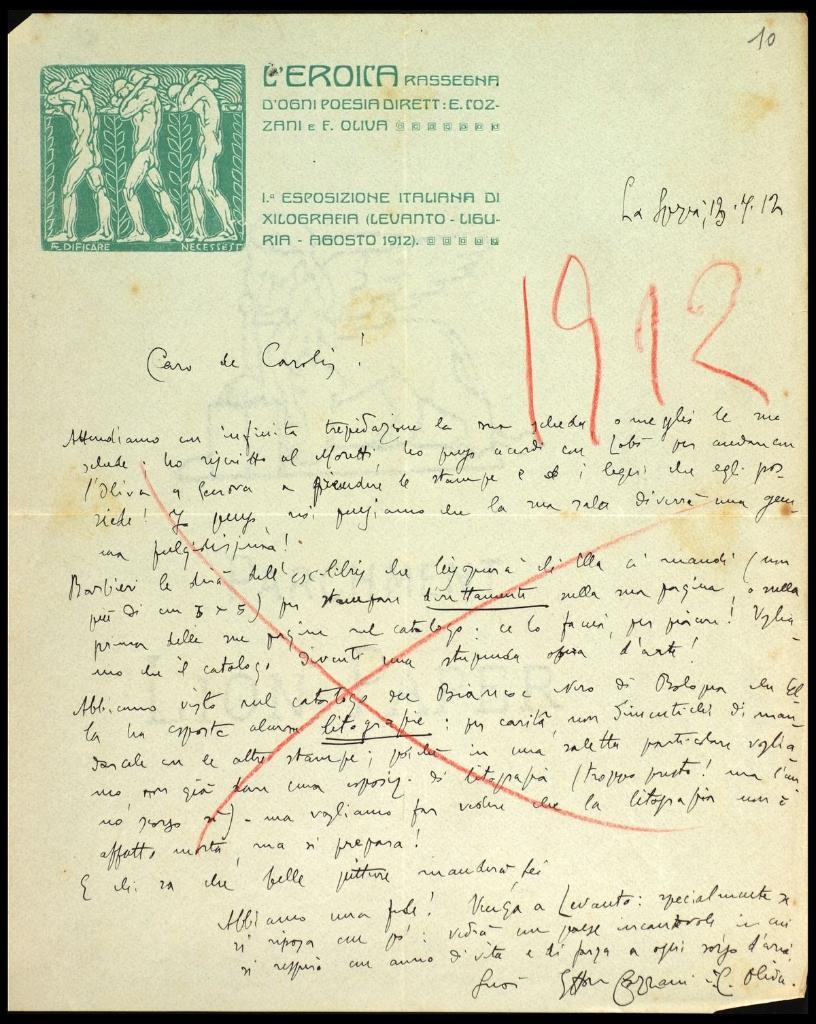 10
L'EROICA RASSEGNA
D'OGNI POESIA DIRETT: E. COZ-
ZANI E F. OLIVA
I.ª ESPOSIZIONE ITALIANA DI
XILOGRAFIA (LEVANTO - LIGU-
RIA - AGOSTO 1912).
ÆDIFICARE NECESSEST
La Spezia, .12
1912
Caro de Carolis!
Attendiamo con infinita trepidazione la sua scheda o meglio le sue
schede: ho riscritto al Moretti, ho preso accordi con per
l'Oliva a Genova a prendere le stampe e i legni che egli pos-
siede! Io penso, noi pensiamo che la sua sala diverrà una gem-
ma fulgidissima!
Barbieri le dirà dell'ex-libris che bisognerà che Ella ci mandi (non
più di cm 5 x 5) per stampare direttamente nella sua pagina, o nella
prima delle sue pagine nel catalogo: ce lo faccia, per piacere! Voglia-
mo che il catalogo diventi una stupenda opera d'arte!
Abbiamo visto nel catalogo del Bianco e Nero di Bologna che El-
la ha esposte alcune litografie: per carità, non dimentichi di man-
darcele con le altre stampe; poichè in una saletta particolare voglia-
mo non già fare una esposiz. di litografia (troppo presto! ma l'an-
no sì) - ma vogliamo far vedere che la litografia non è
affatto morta, ma si prepara!
E chi sa che belle pitture manderà Lei
Abbiamo una fede! Venga a Levanto: specialmente se
si riposa un po': vedrà un paese incantevole in cui
si respira un anno di vita e di forza a ogni sorso d'aria.
Suoi Ettore Cozzani - F. Oliva.